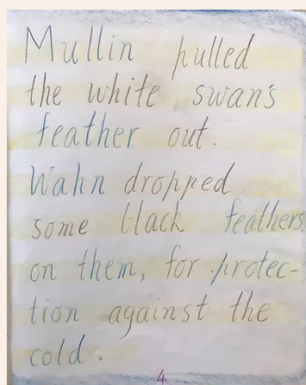 Mullin pulled
the white swan's
feather out.
Wahn dropped
some black feathers
on them, for protec-
tion against the
cold.
4